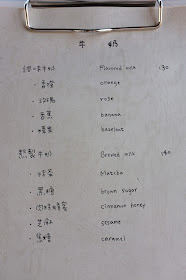 牛 奶
調味牛奶 Flavored milk 130
· 香橙 orange
· 玫瑰 rose
· 香蕉 banana
· 榛果 hazelnut
熬製牛奶 Brewed milk 140
· 抹茶 Matcha
· 黑糖 brown sugar
· 肉桂蜂蜜 cinnamon honey
· 芝麻 sesame
· 焦糖 caramel